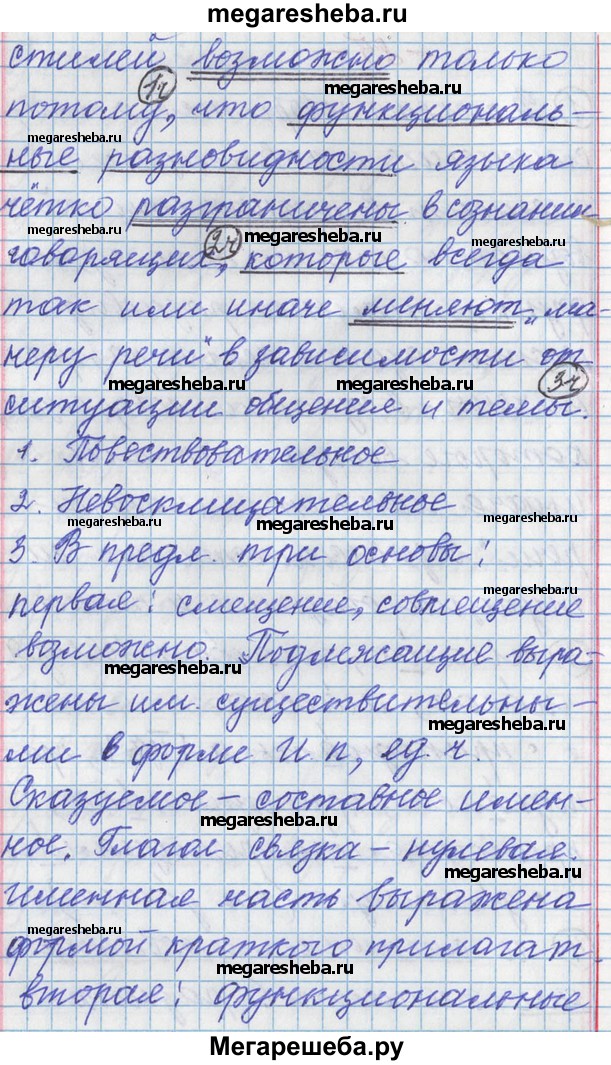 megaresheba.ru
стилей возможно только
1ч
потому, что функциональ-
megaresheba.ru
megaresheba.ru
ные разновидности языка
megaresheba.ru
чётко разграничены в сознании
2ч megaresheba.ru
говорящих, которые всегда
так или иначе меняют „ма-
megaresheba.ru
неру речи" в зависимости от
megaresheba.ru megaresheba.ru 3ч
ситуации общения и темы.
1. Повествовательное
2. Невосклицательное
megaresheba.ru megaresheba.ru
3. В предл. три основы:
megaresheba.ru
первая: смещение, совмещение
возможно. Подлежащие выра-
megaresheba.ru
жены им. существительны-
megaresheba.ru
ми в форме И. п, ед. ч.
Сказуемое – составное имен-
megaresheba.ru
ное. Глагол связка – нулевая.
именная часть выражена
megaresheba.ru
формой краткого прилагат.
megaresheba.ru
вторая: функциональные
Мегарешеба.ру